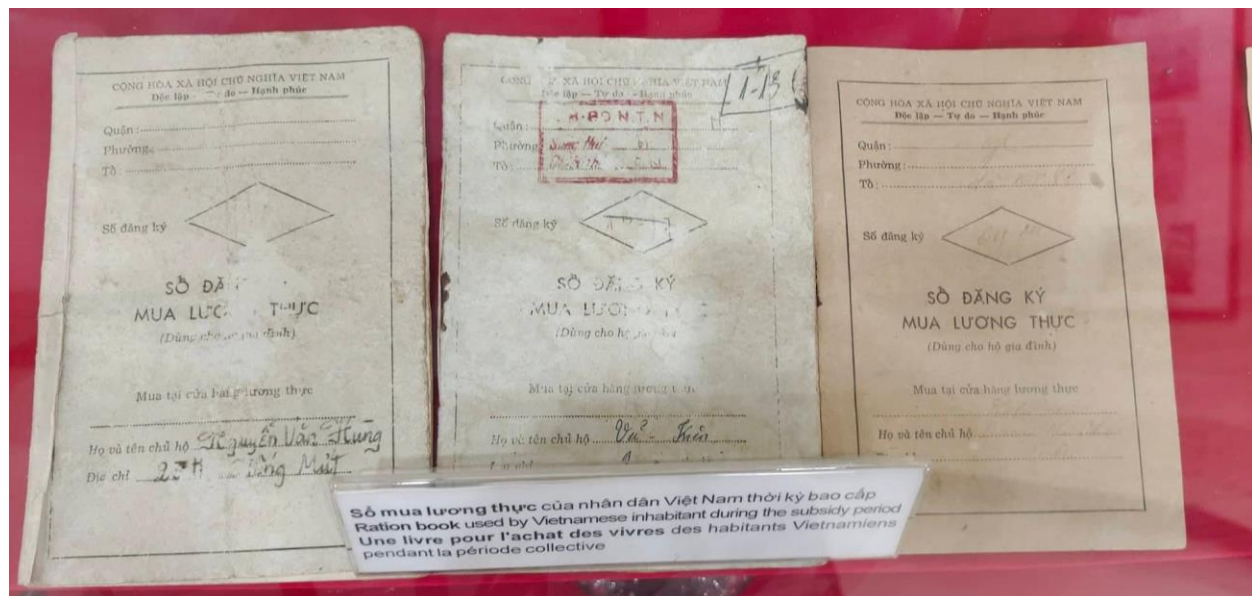 CỘNG HÒA XÃ HỘI CHỦ NGHĨA VIỆT NAM
Độc lập — Tự do — Hạnh phúc
Quận:
Phường:
Tổ
Số đăng ký
SỔ ĐĂ
MUA LƯƠNG THỰC
(Dùng cho hộ gia đình)
Mua tại cửa hàng lương thực
Họ và tên chủ hộ Nguyễn Văn Hùng
Địa chỉ
CỘNG XÃ HỘI CHỦ NGHĨA VIỆT NAM
Độc lập — Tự do — Hạnh phúc
1-13
Quận:
Phường
Tổ:
Số đăng ký
SỔ ĐĂNG KÝ
MUA LƯƠNG
(Dùng cho hộ gia đình)
Mua tại cửa hàng lương thực
Họ và tên chủ hộ Vũ
CỘNG HÒA XÃ HỘI CHỦ NGHĨA VIỆT NAM
Độc lập — Tự do — Hạnh phúc
Quận:
Phường:
Tổ:
Số đăng ký
SỔ ĐĂNG KÝ
MUA LƯƠNG THỰC
(Dùng cho hộ gia đình)
Mua tại cửa hàng lương thực
Họ và tên chủ hộ
Sổ mua lương thực của nhân dân Việt Nam thời kỳ bao cấp
Ration book used by Vietnamese inhabitant during the subsidy period
Une livre pour l'achat des vivres des habitants Vietnamiens
pendant la période collective